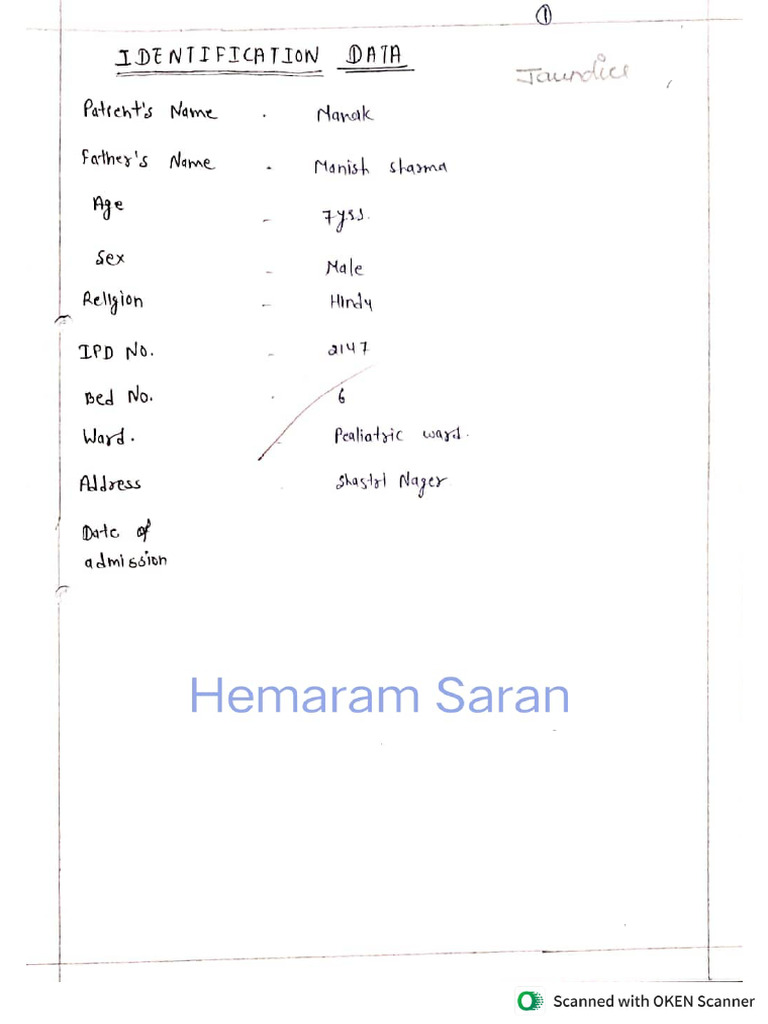 ①
IDENTIFICATION DATA
Jaundice
Patient's Name - Nanak
Father's Name - Manish sharma
Age - 7yrs.
Sex - Male
Religion - Hindu
IPD No. - 2147
Bed No. - 6
Ward. - Pediatric ward.
Address - Shastri Nager
Date of
admission
Hemaram Saran
Scanned with OKEN Scanner